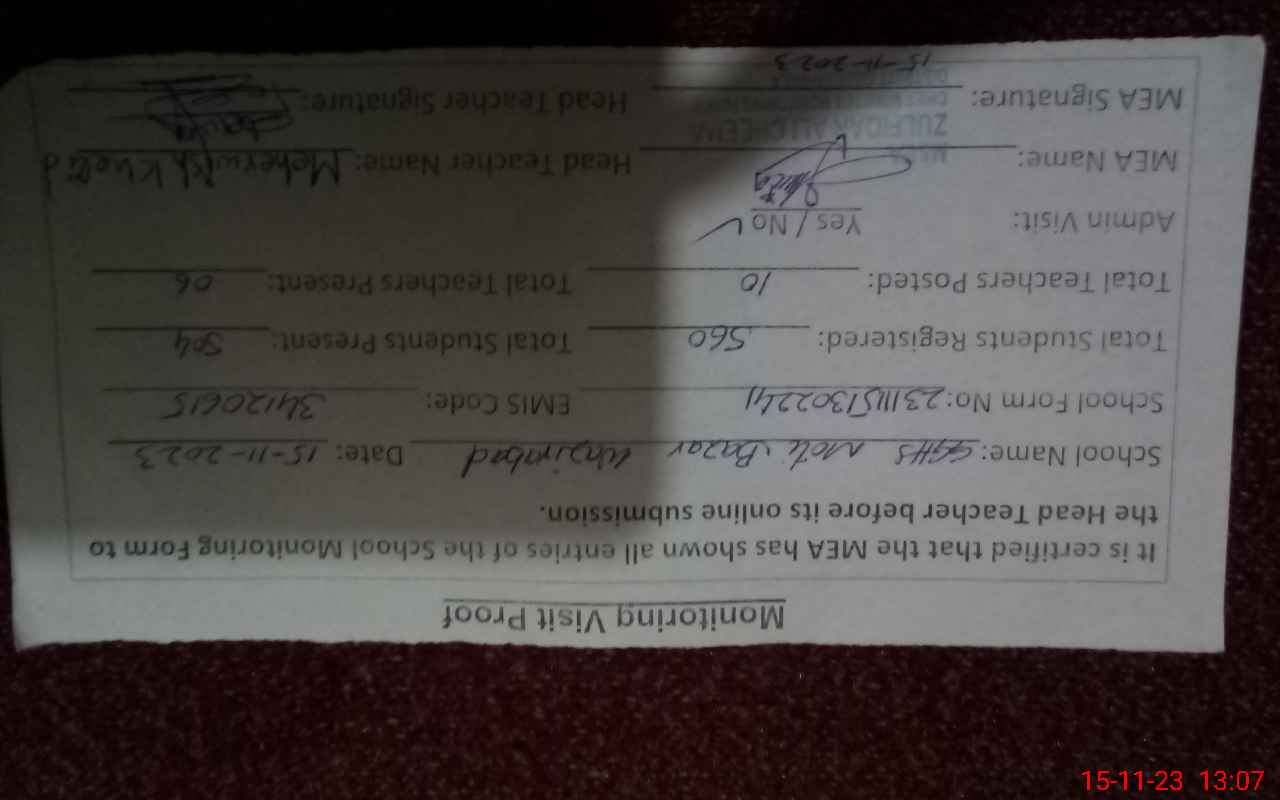 Monitoring Visit Proof
It is certified that the MEA has shown all entries of the School Monitoring Form to
the Head Teacher before its online submission.
School Name: GGHS Moti Bazar Wazirabad Date: 15-11-2023
School Form No: 231115130224 EMIS Code: 34120615
Total Students Registered: 560 Total Students Present: 504
Total Teachers Posted: 10 Total Teachers Present: 06
Admin Visit: Yes / No ✓
MEA Name: Head Teacher Name: Meherwish
ZULFIQAR ALI CHEEMA
MEA Signature: Head Teacher Signature:
15-11-2023
15-11-23 13:07